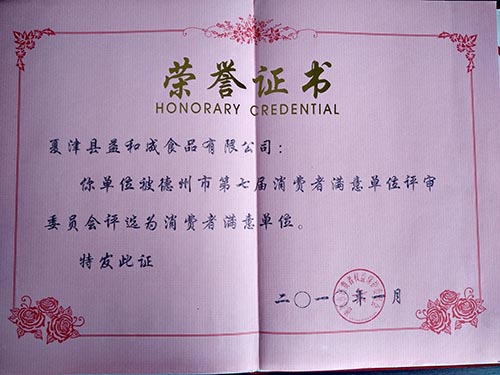 荣誉证书
HONORARY CREDENTIAL
夏津县益和成食品有限公司：
你单位被德州市第七届消费者满意单位评审
委员会评选为消费者满意单位。
特发此证
二〇一一年一月